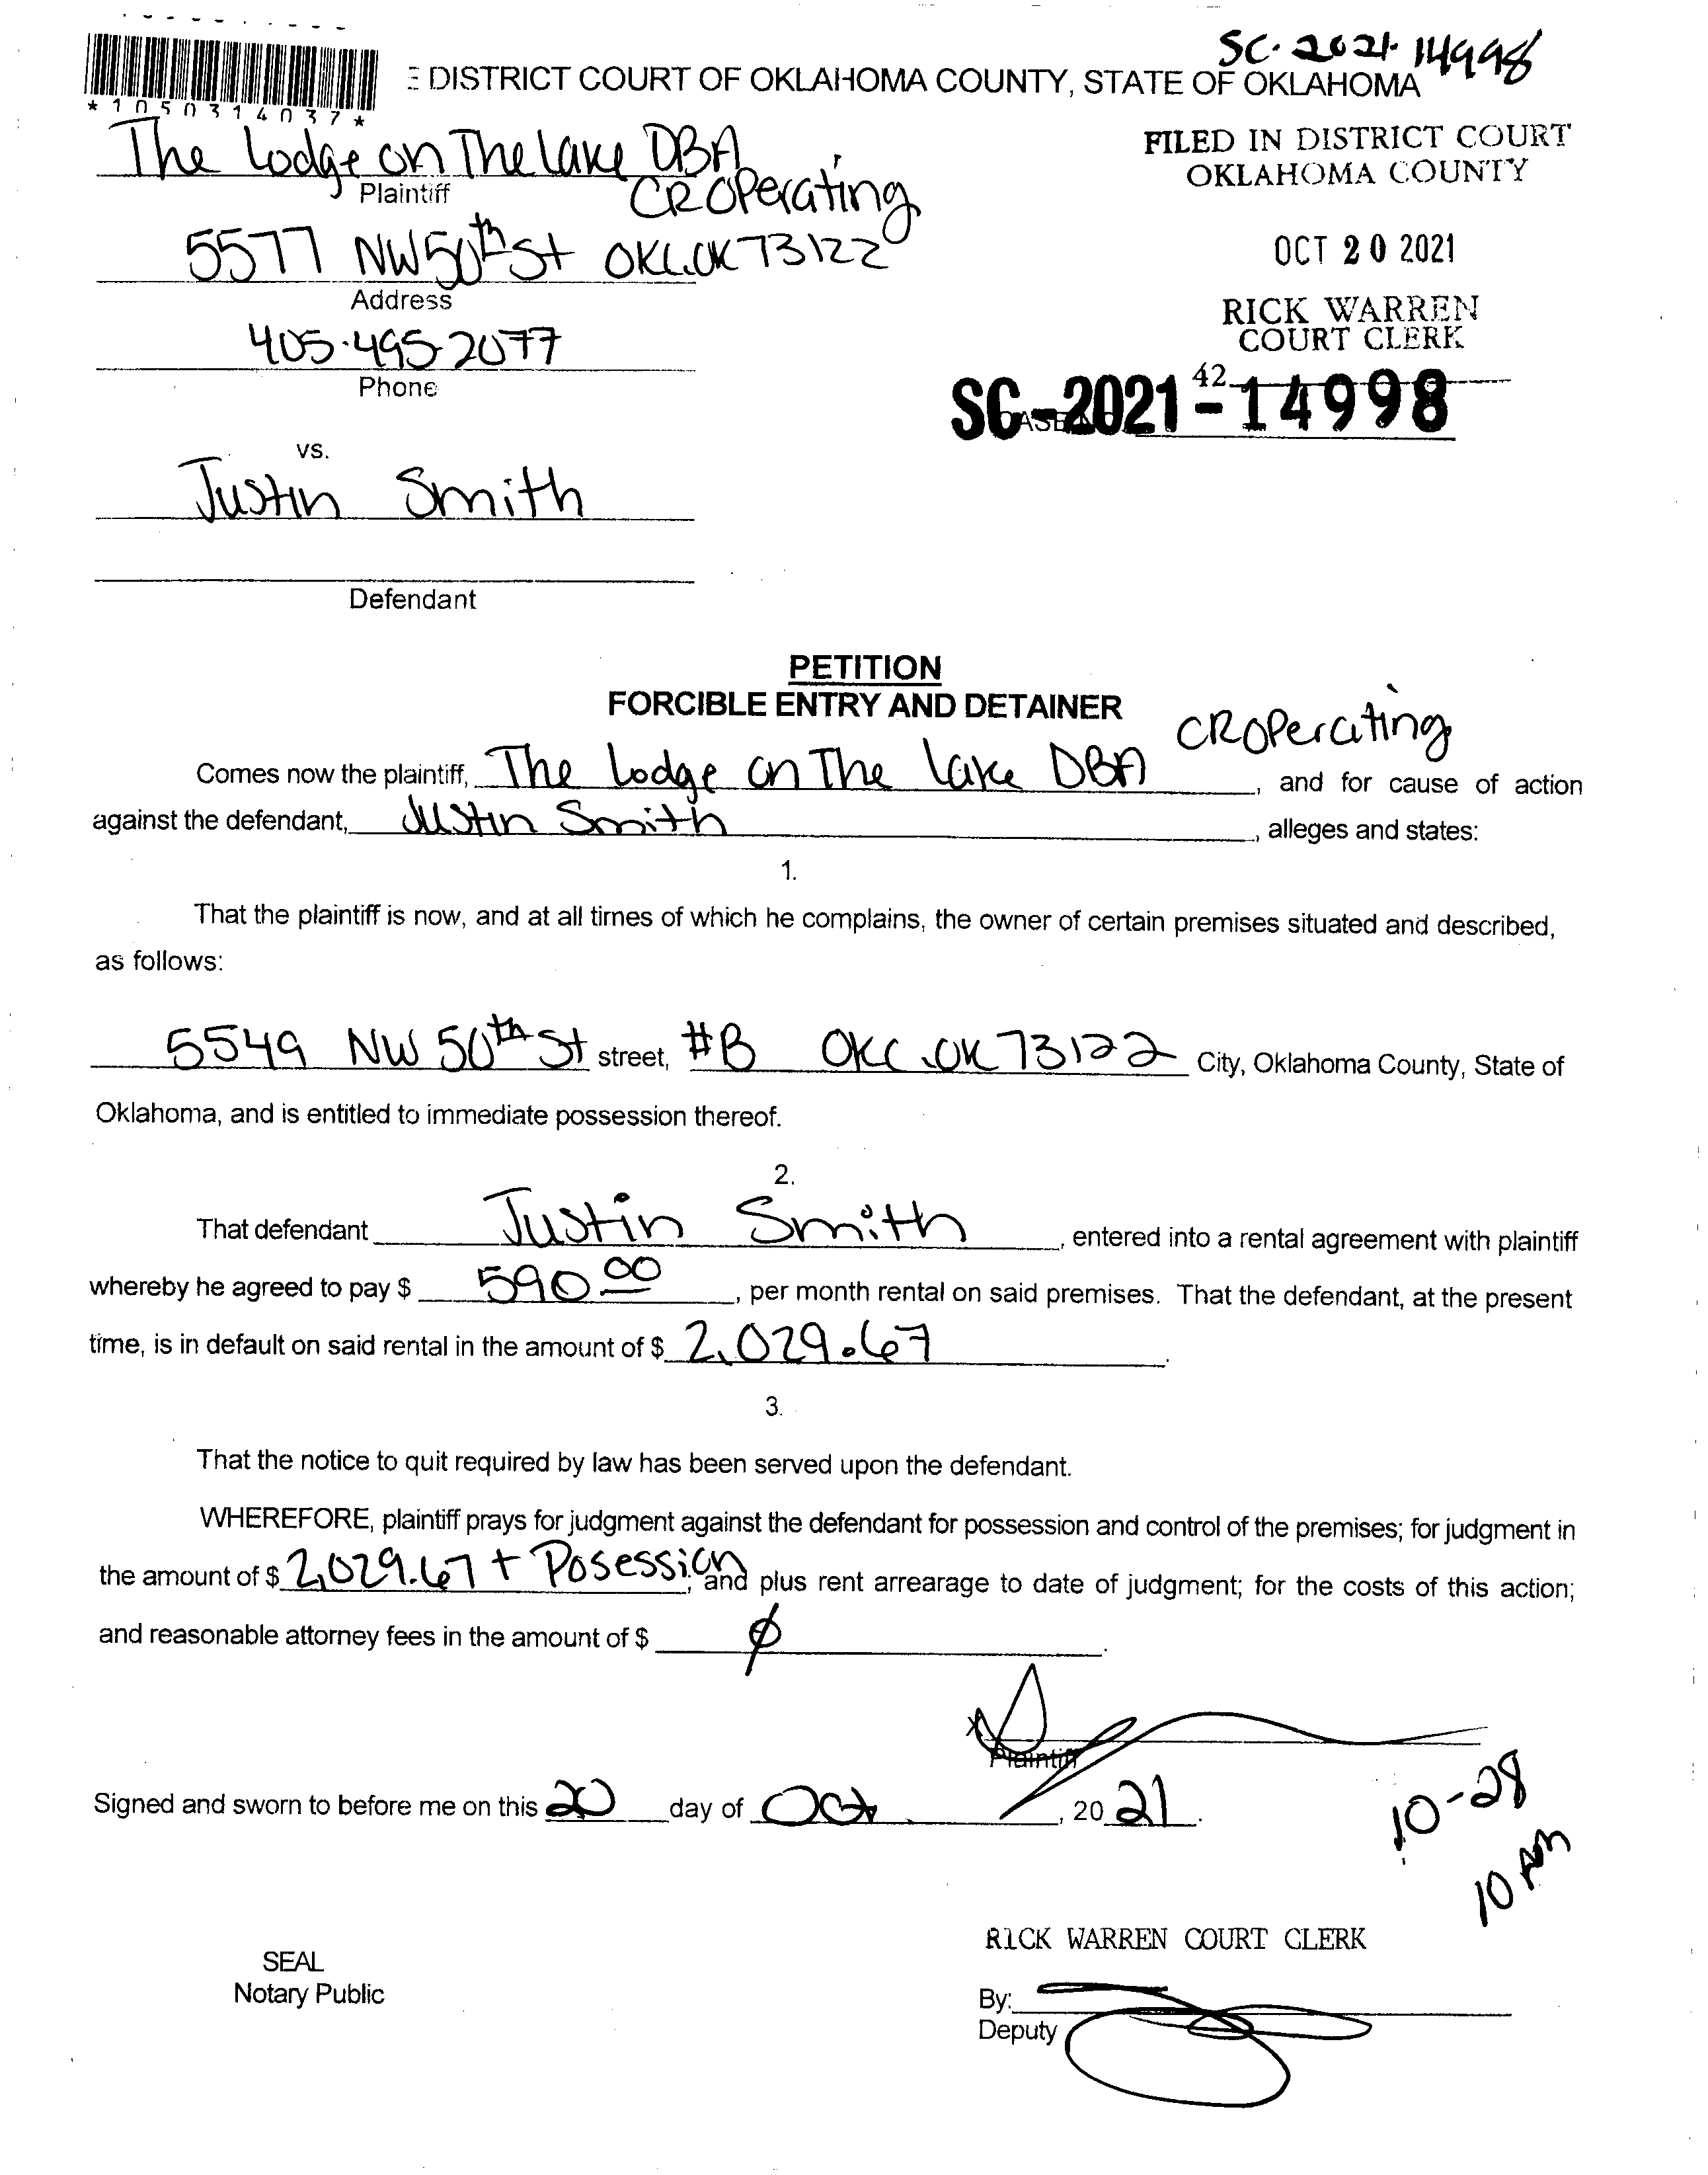 SC-2021-14998
E DISTRICT COURT OF OKLAHOMA COUNTY, STATE OF OKLAHOMA
*1050314037*
The Lodge on The Lake DBA
CR Operating
Plaintiff
FILED IN DISTRICT COURT
OKLAHOMA COUNTY
5577 NW 50th St OKC.OK 73122
Address
OCT 20 2021
405-495-2077
Phone
RICK WARREN
COURT CLERK
42
SC-2021-14998
vs.
Justin Smith
Defendant
PETITION
FORCIBLE ENTRY AND DETAINER
Comes now the plaintiff, The Lodge on The Lake DBA CR Operating, and for cause of action
against the defendant, Justin Smith, alleges and states:
1.
That the plaintiff is now, and at all times of which he complains, the owner of certain premises situated and described,
as follows:
5549 NW 50th St street, #B OKC.OK 73122 City, Oklahoma County, State of
Oklahoma, and is entitled to immediate possession thereof.
2.
That defendant Justin Smith, entered into a rental agreement with plaintiff
whereby he agreed to pay $ 590.00, per month rental on said premises. That the defendant, at the present
time, is in default on said rental in the amount of $ 2,029.67.
3.
That the notice to quit required by law has been served upon the defendant.
WHEREFORE, plaintiff prays for judgment against the defendant for possession and control of the premises; for judgment in
the amount of $ 2,029.67 + Posession, and plus rent arrearage to date of judgment; for the costs of this action;
and reasonable attorney fees in the amount of $ ∅.
X
Plaintiff
Signed and sworn to before me on this 20 day of Oct, 2021.
10-28
10 AM
RICK WARREN COURT CLERK
SEAL
Notary Public
By:
Deputy